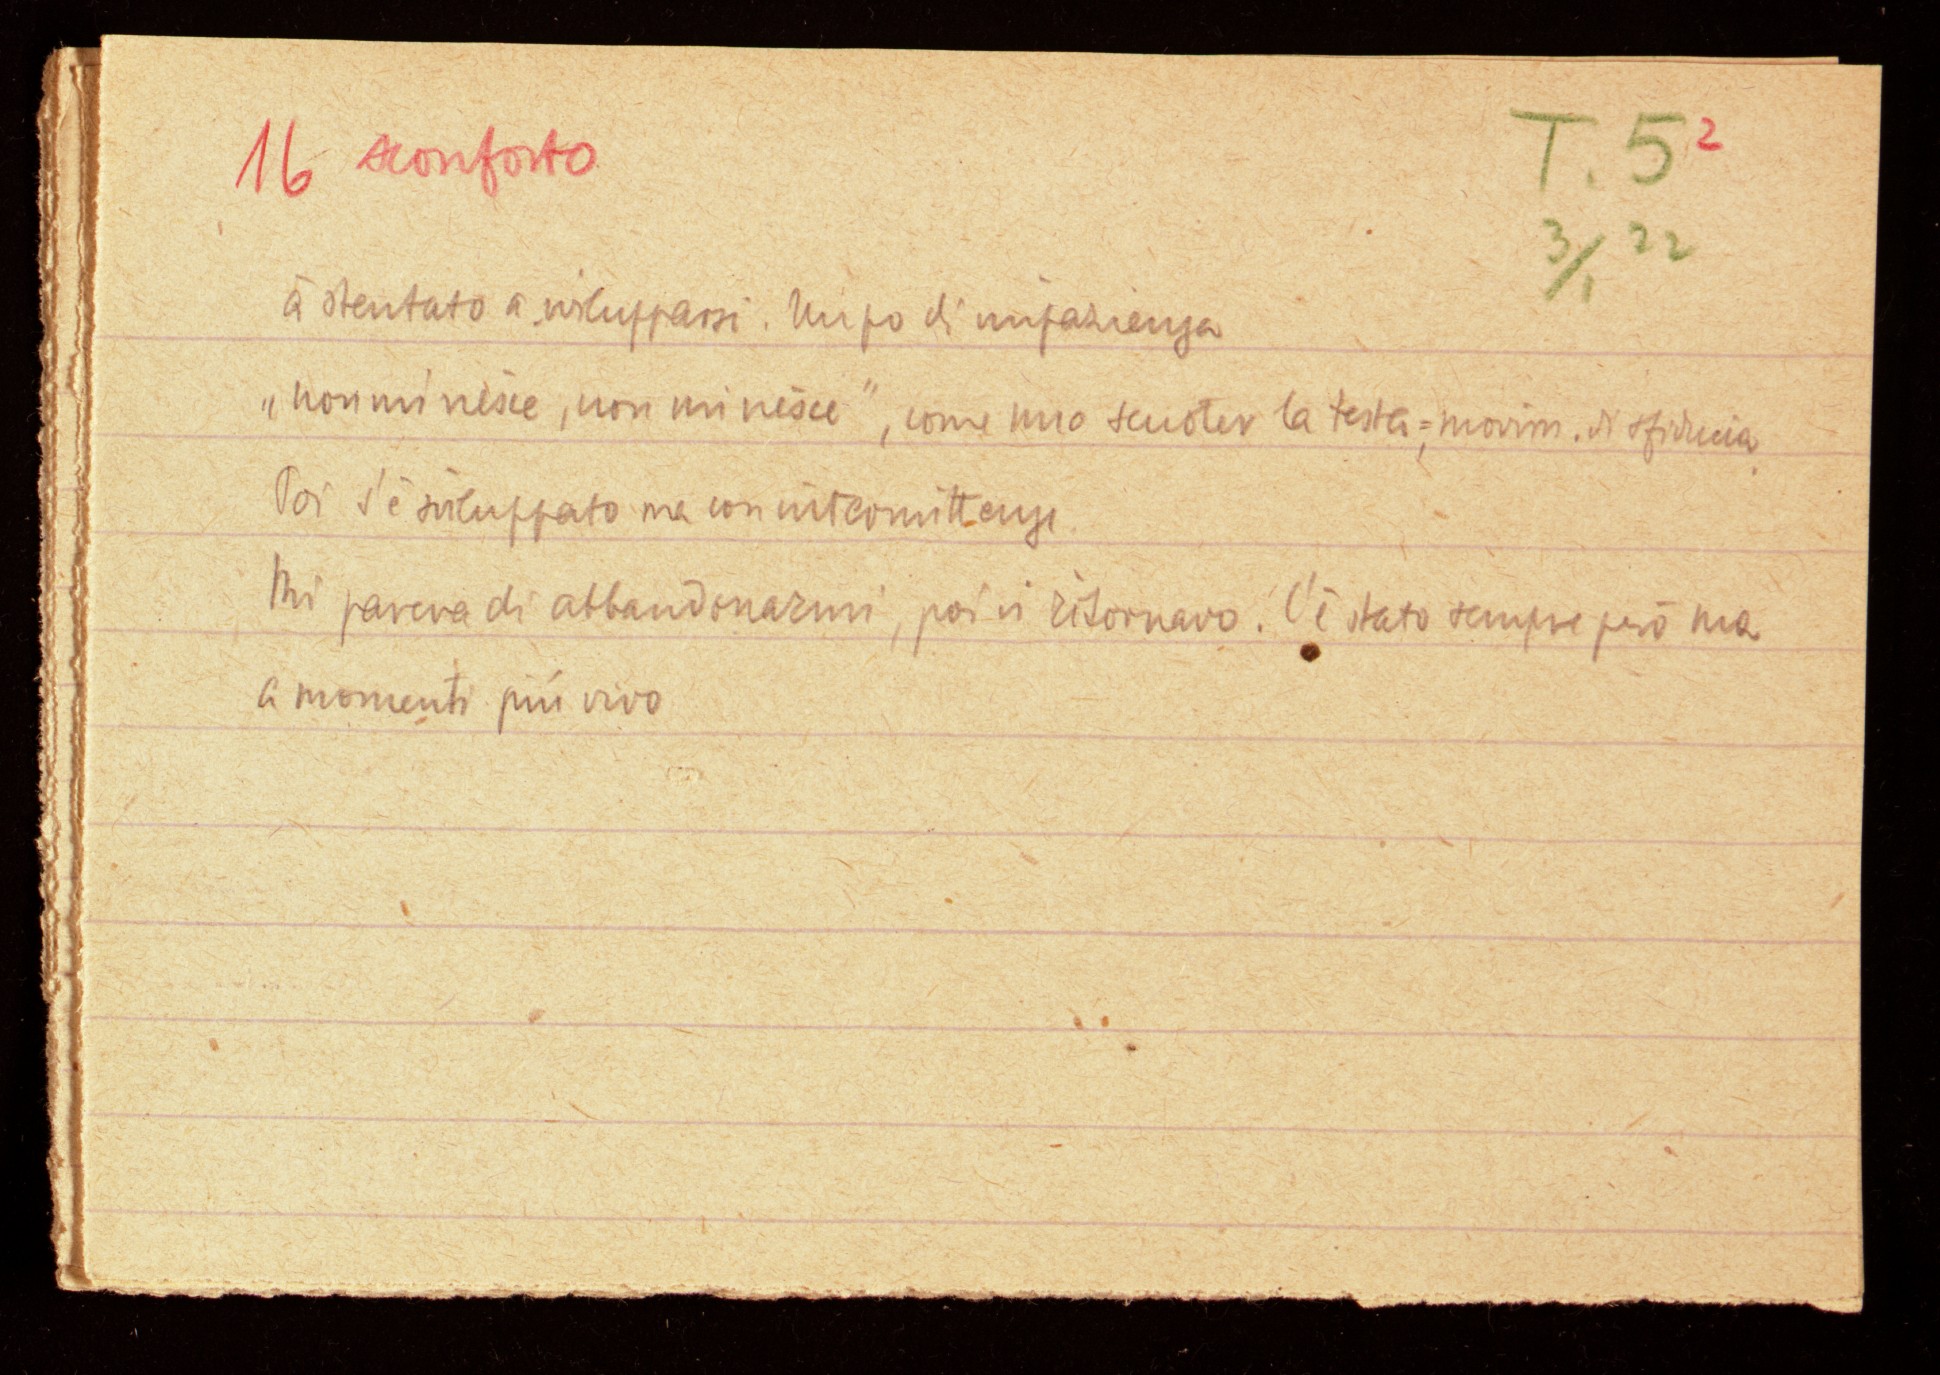 16 sconforto
T. 5²
3/1 22
à stentato a svilupparsi. Un po di impazienza
„non mi riesce, non mi riesce”, come uno scuoter la testa =, movim. di sfiducia
Poi s'è sviluppato ma con intermittenze.
Mi pareva di abbandonarmi, poi vi ritornavo. C'è stato sempre però ma
a momenti più vivo